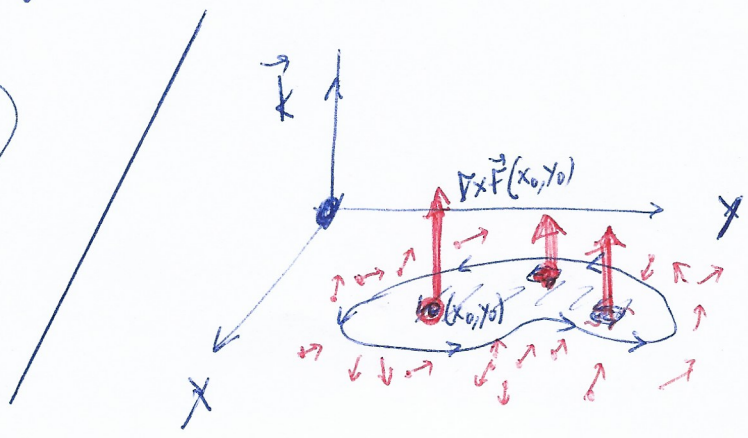 k⃗
∇×F⃗(x₀,y₀)
y
(x₀,y₀)
x